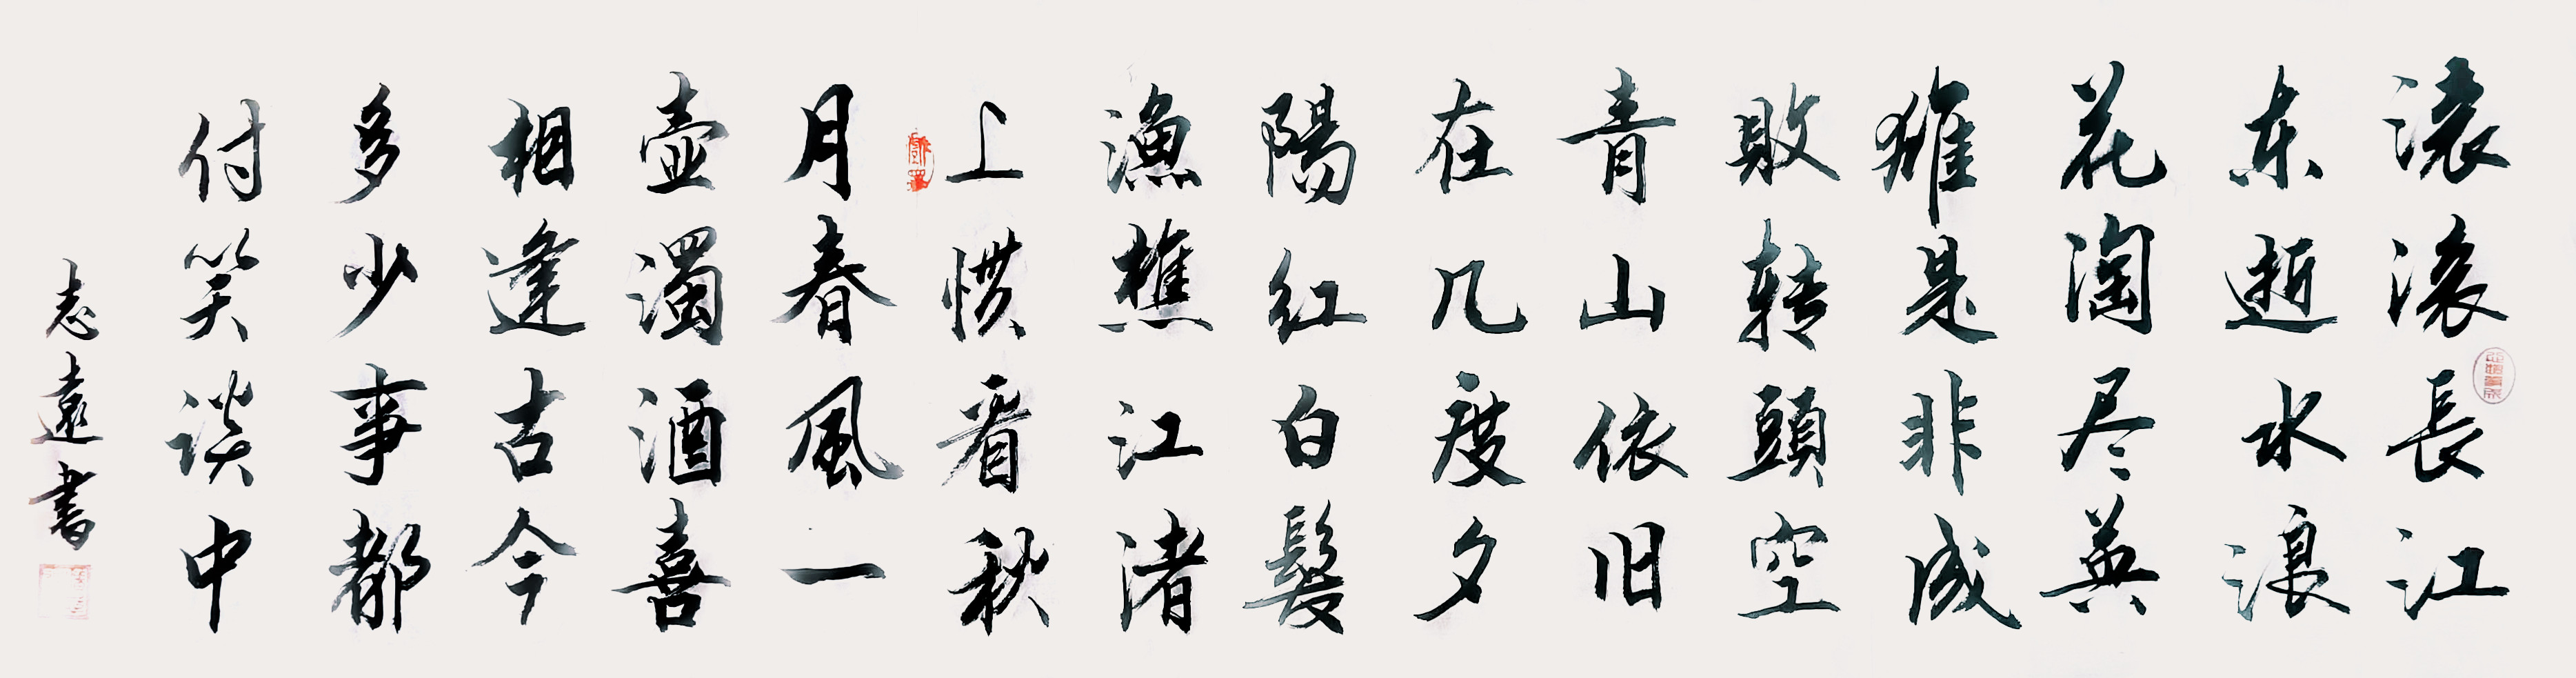 滚滚長江
东逝水浪
花淘尽英
雄是非成
敗转頭空
青山依旧
在几度夕
陽红白髮
漁樵江渚
上惯看秋
月春風一
壶濁酒喜
相逢古今
多少事都
付笑谈中
志遠書